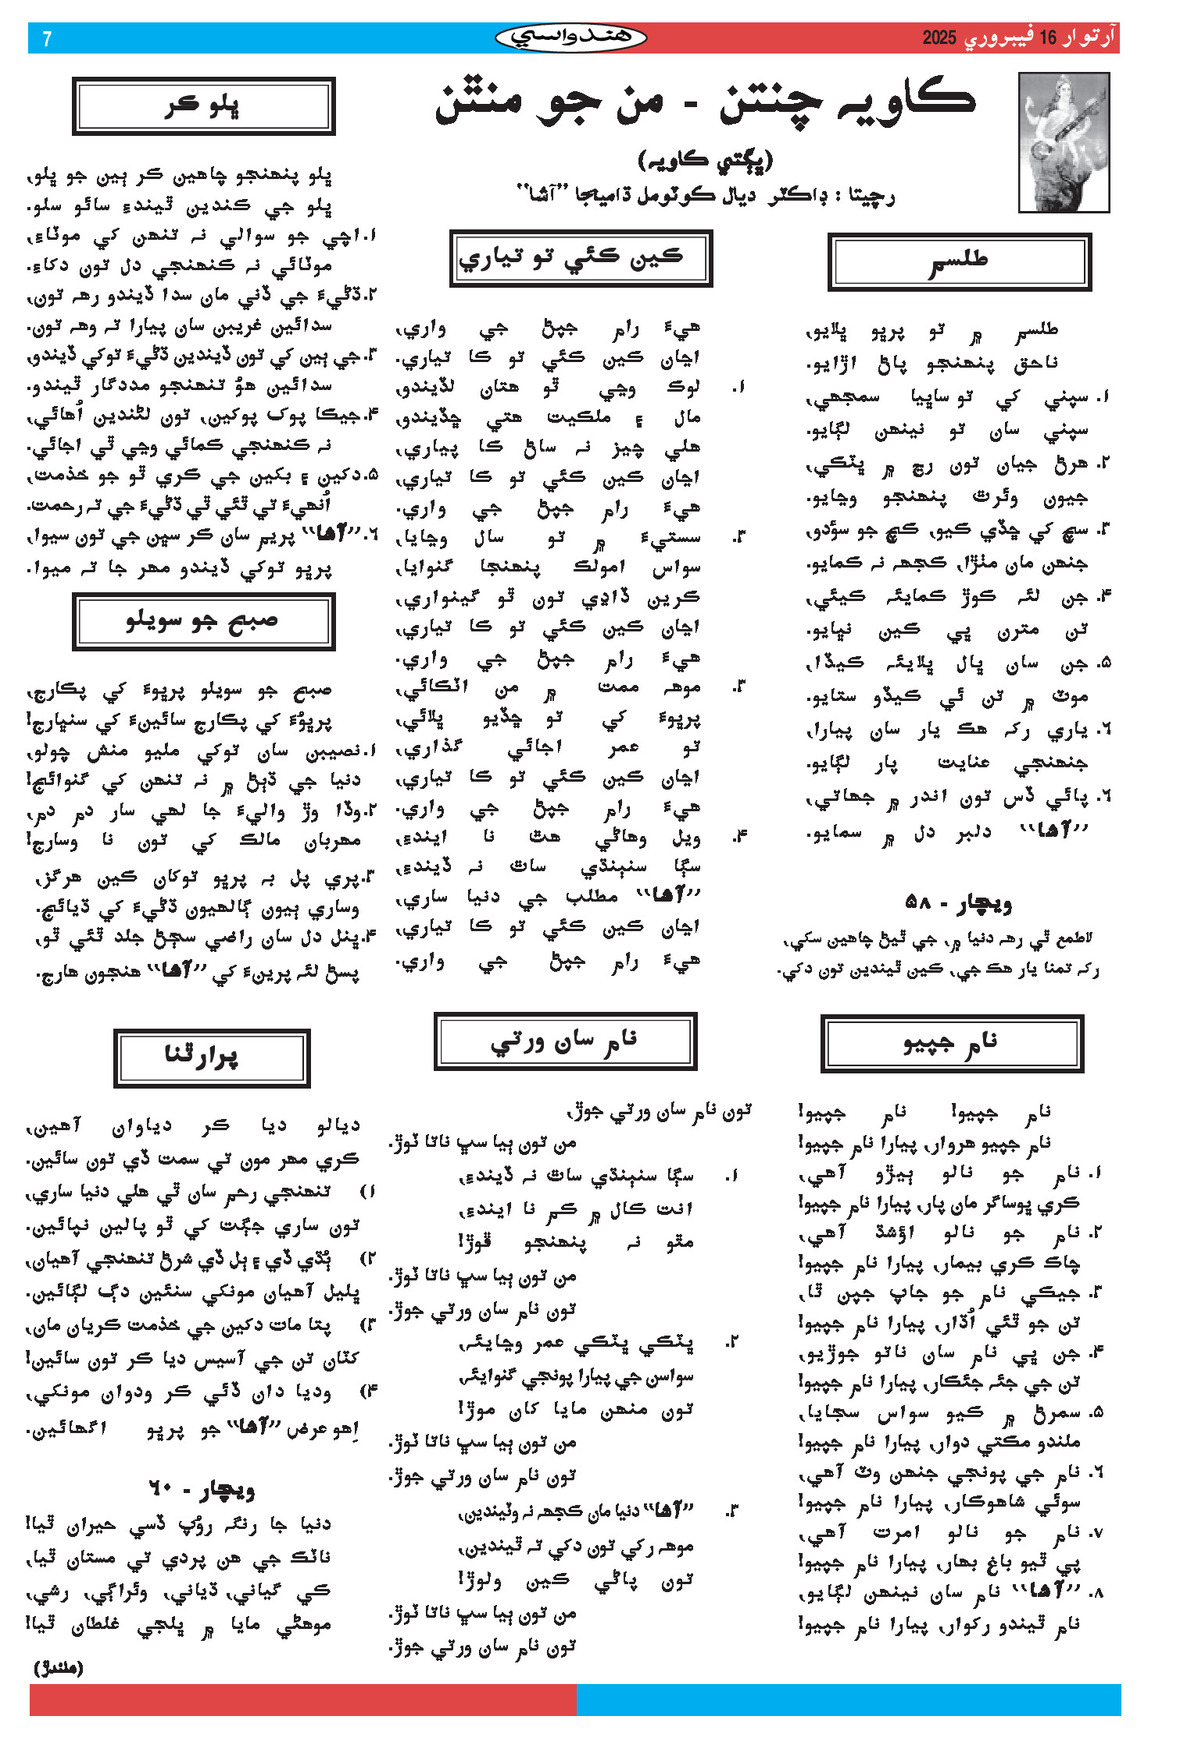 آرتوار 16 فيبروري 2025
هندواسي
7
ڪاويہ چنتن - من جو منٿن
(ڀڳتي ڪاويہ)
رچيتا : ڊاڪٽر ديال ڪوٽومل ڌاميڃا ”آشا“
طلسم
طلسم ۾ تو پرڀو ڀلايو،
ناحق پنھنجو پاڻ اڙايو.
۱. سپني کي تو ساڀيا سمجھي،
سپني سان تو نينھن لڳايو.
۲. هرڻ جيان تون رڃ ۾ ڀٽڪي،
جيون وئرٿ پنھنجو وڃايو.
۳. سچ کي ڇڏي ڪيو، ڪچ جو سؤدو،
جنھن مان مٺڙا، ڪجھہ نہ ڪمايو.
۴. جن لئہ ڪوڙ ڪمايئہ ڪيئي،
تن مترن ڀي ڪين نڀايو.
۵. جن سان ڀال ڀلايئہ ڪيڏا،
موٽ ۾ تن ئي ڪيڏو ستايو.
۶. ياري رکہ هڪ يار سان پيارا،
جنھنجي عنايت پار لڳايو.
۶. پائي ڏس تون اندر ۾ جھاتي،
”آشا“ دلبر دل ۾ سمايو.
ويچار - ۵۸
لاطمع ٿي رهہ دنيا ۾، جي ٿيڻ چاهين سکي،
رکہ تمنا يار هڪ جي، ڪين ٿيندين تون دکي.
ڪين ڪئي تو تياري
هيءَ رام جپڻ جي واري،
اڃان ڪين ڪئي تو ڪا تياري.
۱. لوڪ وڃي ٿو هتان لڏيندو،
مال ۽ ملڪيت هتي ڇڏيندو،
هلي چيز نہ ساڻ ڪا پياري،
اڃان ڪين ڪئي تو ڪا تياري،
هيءَ رام جپڻ جي واري.
۳. سستيءَ ۾ تو سال وڃايا،
سواس امولڪ پنھنجا گنوايا،
ڪرين ڏاڍي تون ٿو گينواري،
اڃان ڪين ڪئي تو ڪا تياري،
هيءَ رام جپڻ جي واري.
۳. موهہ ممت ۾ من اٽڪائي،
پرڀوءَ کي تو ڇڏيو ڀلائي،
تو عمر اجائي گذاري،
اڃان ڪين ڪئي تو ڪا تياري،
هيءَ رام جپڻ جي واري.
۴. ويل وهاڻي هٿ نا ايندءِ،
سڳا سنٻنڌي ساٿ نہ ڏيندءِ،
”آشا“ مطلب جي دنيا ساري،
اڃان ڪين ڪئي تو ڪا تياري،
هيءَ رام جپڻ جي واري.
ڀلو ڪر
ڀلو پنھنجو چاهين ڪر ٻين جو ڀلو،
ڀلو جي ڪندين ٿيندءِ سائو سلو.
۱.اچي جو سوالي نہ تنھن کي موٽاءِ،
موٽائي نہ ڪنھنجي دل تون دکاءِ.
۲.ڌڻيءَ جي ڏني مان سدا ڏيندو رهہ تون،
سدائين غريبن سان پيارا تہ وهہ تون.
۳.جي ٻين کي تون ڏيندين ڌڻيءَ توکي ڏيندو،
سدائين هوُ تنھنجو مددگار ٿيندو.
۴.جيڪا پوک پوکين، تون لڻندين اُهائي،
نہ ڪنھنجي ڪمائي وڃي ٿي اجائي.
۵.دکين ۽ بکين جي ڪري ٿو جو خذمت،
اُنھيءَ تي ٿئي ٿي ڌڻيءَ جي تہ رحمت.
۶.”آشا“ پريم سان ڪر سڀن جي تون سيوا،
پرڀو توکي ڏيندو مھر جا تہ ميوا.
صبح جو سويلو
صبح جو سويلو پرڀوءَ کي پڪارج،
پرڀوُءَ کي پڪارج سائينءَ کي سنڀارج!
۱.نصيبن سان توکي مليو منش چولو،
دنيا جي ڏٻڻ ۾ نہ تنھن کي گنوائج!
۲.وڏا وڙ واليءَ جا لھي سار دم دم،
مھربان مالڪ کي تون نا وسارج!
۳.پري پل بہ پرڀو توکان ڪين هرگز،
وساري ٻيون ڳالھيون ڌڻيءَ کي ڌيائج.
۴.ڀنل دل سان راضي سڄڻ جلد ٿئي ٿو،
پسڻ لئہ پرينءَ کي ”آشا“ هنجون هارج.
نام جپيو
نام جپيو! نام جپيو!
نام جپيو هروار، پيارا نام جپيو!
۱. نام جو نالو ٻيڙو آهي،
ڪري ڀوساگر مان پار، پيارا نام جپيو!
۲. نام جو نالو اؤشڌ آهي،
چاڪ ڪري بيمار، پيارا نام جپيو!
۳. جيڪي نام جو جاپ جپن ٿا،
تن جو ٿئي اُڌار، پيارا نام جپيو!
۴. جن ڀي نام سان ناتو جوڙيو،
تن جي جئہ جئڪار، پيارا نام جپيو!
۵. سمرڻ ۾ ڪيو سواس سجايا،
ملندو مڪتي دوار، پيارا نام جپيو!
۶. نام جي پونجي جنھن وٽ آهي،
سوئي شاهوڪار، پيارا نام جپيو!
۷. نام جو نالو امرت آهي،
پي ٿيو باغ بھار، پيارا نام جپيو!
۸. ”آشا“ نام سان نينھن لڳايو،
نام ٿيندو رکوار، پيارا نام جپيو!
نام سان ورتي
تون نام سان ورتي جوڙ،
من تون ٻيا سڀ ناتا ٽوڙ.
۱. سڳا سنٻنڌي ساٿ نہ ڏيندءِ،
انت ڪال ۾ ڪم نا ايندءِ،
مٿو نہ پنھنجو ڦوڙ!
من تون ٻيا سڀ ناتا ٽوڙ.
تون نام سان ورتي جوڙ.
۲. ڀٽڪي ڀٽڪي عمر وڃايئہ،
سواسن جي پيارا پونجي گنوايئہ،
تون منھن مايا کان موڙ!
من تون ٻيا سڀ ناتا ٽوڙ.
تون نام سان ورتي جوڙ.
۳. ”آشا“ دنيا مان ڪجھہ نہ وٺيندين،
موهہ رکي تون دکي تہ ٿيندين،
تون پاڻي ڪين ولوڙ!
من تون ٻيا سڀ ناتا ٽوڙ.
تون نام سان ورتي جوڙ.
پرارٿنا
ديالو ديا ڪر دياوان آهين،
ڪري مھر مون تي سمت ڏي تون سائين.
۱) تنھنجي رحم سان ٿي هلي دنيا ساري،
تون ساري جڳت کي ٿو پالين نپائين.
۲) ٻُڌي ڏي ۽ ٻل ڏي شرڻ تنھنجي آهيان،
ڀليل آهيان مونکي سنئين دڳ لڳائين.
۳) پتا مات دکين جي خذمت ڪريان مان،
کٽان تن جي آسيس ديا ڪر تون سائين!
۴) وديا دان ڏئي ڪر ودوان مونکي،
اِهو عرض ”آشا“ جو پرڀو اگھائين.
ويچار - ۶۰
دنيا جا رنگہ روُپ ڏسي حيران ٿيا!
ناٽڪ جي هن پردي تي مستان ٿيا،
ڪي گياني، ڌياني، وئراڳي، رشي،
موهڻي مايا ۾ ڀلجي غلطان ٿيا!
(هلندڙ)